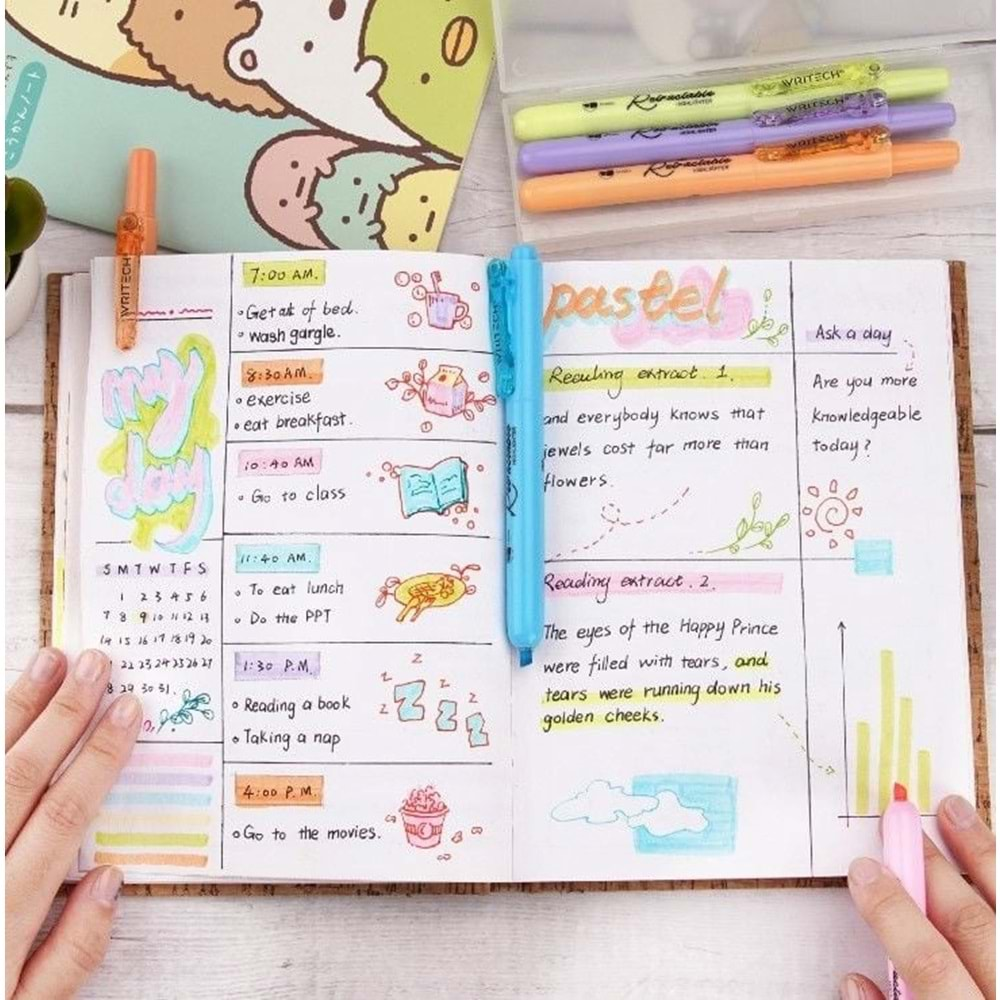 こうかんノート
WRITECH
Retractable
HIGHLIGHTER
WRITECH
Retractable
HIGHLIGHTER
WRITECH
Retractable
HIGHLIGHTER
WRITECH
my
day
S M T W T F S
1 2 3 4 5 6
7 8 9 10 11 12 13
14 15 16 17 18 19 20
22 23 24 25 26 27
8 29 30 31.
7:00 AM.
Get out of bed.
wash gargle.
8:30 AM.
exercise
eat breakfast.
10:40 AM
Go to class
11:40 AM.
To eat lunch
Do the PPT
1:30 P.M.
Reading a book
Taking a nap
z
z
z
Z
Z
Z
4:00 P.M.
Go to the movies.
WRITECH
Retractable
HIGHLIGHTER
pastel
Reading extract. 1.
and everybody knows that
jewels cost far more than
flowers.
Reading extract. 2.
The eyes of the Happy Prince
were filled with tears, and
tears were running down his
golden cheeks.
Ask a day
Are you more
knowledgeable
today?